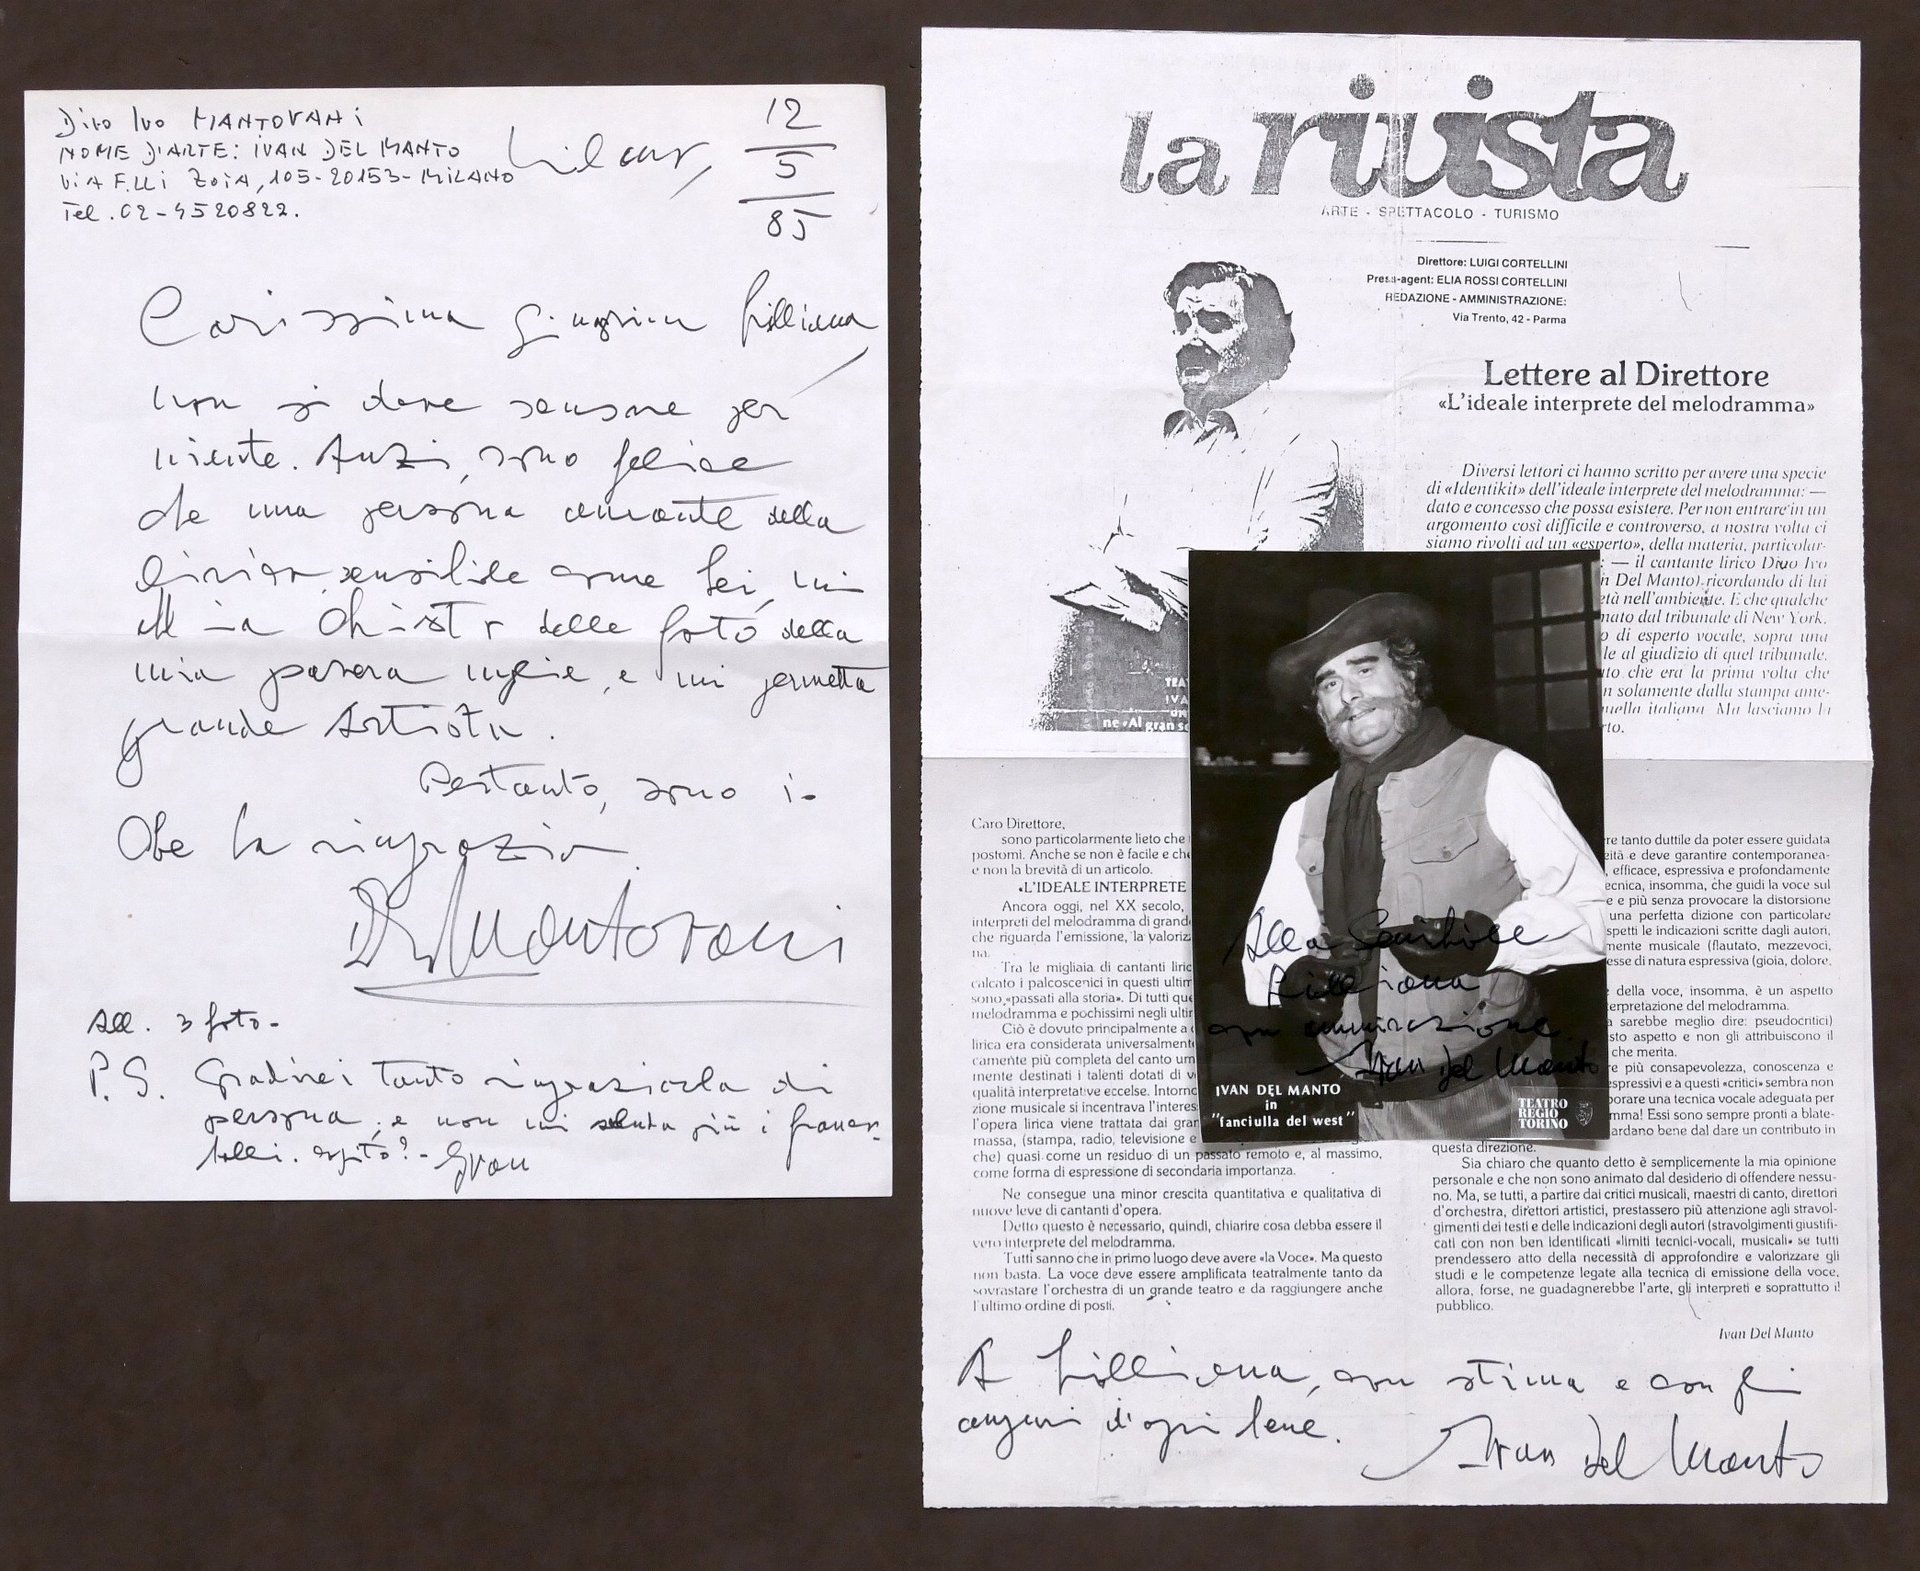 Divo Ivo MANTOVANI
NOME D'ARTE: IVAN DEL MANTO
Via F.lli Zoia, 105-20153-MILANO
Tel. 02-4520822.
Milano,
12
5
85
Carissima Lilliana,
non si deve scusare per
niente. Anzi, sono felice
che una persona amante della
lirica, sensibile come Lei, mi
delle foto della
mia povera moglie, e mi permetta
grande Artista.
Pertanto, sono io
che la ringrazio.
Mantovani
All. 3 foto.
P.S. Gradirei tanto ringraziarla di
persona; e non mi più i
capito? - Ivan
la rivista
ARTE - SPETTACOLO - TURISMO
Direttore: LUIGI CORTELLINI
Press-agent: ELIA ROSSI CORTELLINI
REDAZIONE - AMMINISTRAZIONE:
Via Trento, 42 - Parma
Lettere al Direttore
«L'ideale interprete del melodramma»
Diversi lettori ci hanno scritto per avere una specie
di «Identikit» dell'ideale interprete del melodramma: —
dato e concesso che possa esistere. Per non entrare in un
argomento così difficile e controverso, a nostra volta ci
siamo rivolti ad un «esperto», della materia, particolar-
: — il cantante lirico Divo Ivo
n Del Manto) ricordando di lui
età nell'ambiente. E che qualche
mato dal tribunale di New York,
o di esperto vocale, sopra una
le al giudizio di quel tribunale.
to che era la prima volta che
n solamente dalla stampa ame-
uella italiana. Ma lasciamo la
rto.
TEA
IVA
ne «Al gran s
Caro Direttore,
sono particolarmente lieto che
postomi. Anche se non è facile e che
e non la brevità di un articolo.
«L'IDEALE INTERPRETE
Ancora oggi, nel XX secolo,
interpreti del melodramma di grande
che riguarda l'emissione, la valoriz
na.
Tra le migliaia di cantanti liric
calcato i palcoscenici in questi ultim
sono «passati alla storia». Di tutti que
melodramma e pochissimi negli ultin
Ciò è dovuto principalmente a
lirica era considerata universalmente
camente più completa del canto um
mente destinati i talenti dotati di v
qualità interpretative eccelse. Intorno
zione musicale si incentrava l'interes
l'opera lirica viene trattata dai gran
massa, (stampa, radio, televisione e
che) quasi come un residuo di un passato remoto e, al massimo,
come forma di espressione di secondaria importanza.
Ne consegue una minor crescita quantitativa e qualitativa di
nuove leve di cantanti d'opera.
Detto questo è necessario, quindi, chiarire cosa debba essere il
vero interprete del melodramma.
Tutti sanno che in primo luogo deve avere «la Voce». Ma questo
non basta. La voce deve essere amplificata teatralmente tanto da
sovrastare l'orchestra di un grande teatro e da raggiungere anche
l'ultimo ordine di posti.
re tanto duttile da poter essere guidata
eità e deve garantire contemporanea-
, efficace, espressiva e profondamente
ecnica, insomma, che guidi la voce sul
e e più senza provocare la distorsione
una perfetta dizione con particolare
spetti le indicazioni scritte dagli autori,
mente musicale (flautato, mezzevoci,
esse di natura espressiva (gioia, dolore,
della voce, insomma, è un aspetto
erpretazione del melodramma.
a sarebbe meglio dire: pseudocritici)
sto aspetto e non gli attribuiscono il
che merita.
re più consapevolezza, conoscenza e
espressivi e a questi «critici» sembra non
porare una tecnica vocale adeguata per
mma! Essi sono sempre pronti a blate-
ardano bene dal dare un contributo in
questa direzione.
Sia chiaro che quanto detto è semplicemente la mia opinione
personale e che non sono animato dal desiderio di offendere nessu-
no. Ma, se tutti, a partire dai critici musicali, maestri di canto, direttori
d'orchestra, direttori artistici, prestassero più attenzione agli stravol-
gimenti dei testi e delle indicazioni degli autori (stravolgimenti giustifi-
cati con non ben identificati «limiti tecnici-vocali, musicali» se tutti
prendessero atto della necessità di approfondire e valorizzare gli
studi e le competenze legate alla tecnica di emissione della voce,
allora, forse, ne guadagnerebbe l'arte, gli interpreti e soprattutto il
pubblico.
Ivan Del Manto
Alla Sensibile
Lilliana
con ammirazione
Ivan Del Manto
IVAN DEL MANTO
in
"fanciulla del west"
TEATRO
REGIO
TORINO
A Lilliana, con stima e con gli
auguri d'ogni bene.
Ivan Del Manto